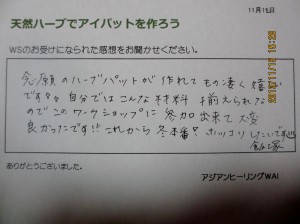 11月15日
天然ハーブでアイパットを作ろう
WSのお受けになられた感想をお聞かせください。
念願のハーブパットが作れてもの凄く嬉しい
です々。自分ではこんな材料揃えられない
のでこのワークショップに参加出来て大変
良かったです!! これから冬本番?ホッコリ
ありがとうございました。
アジアンヒーリングWAI